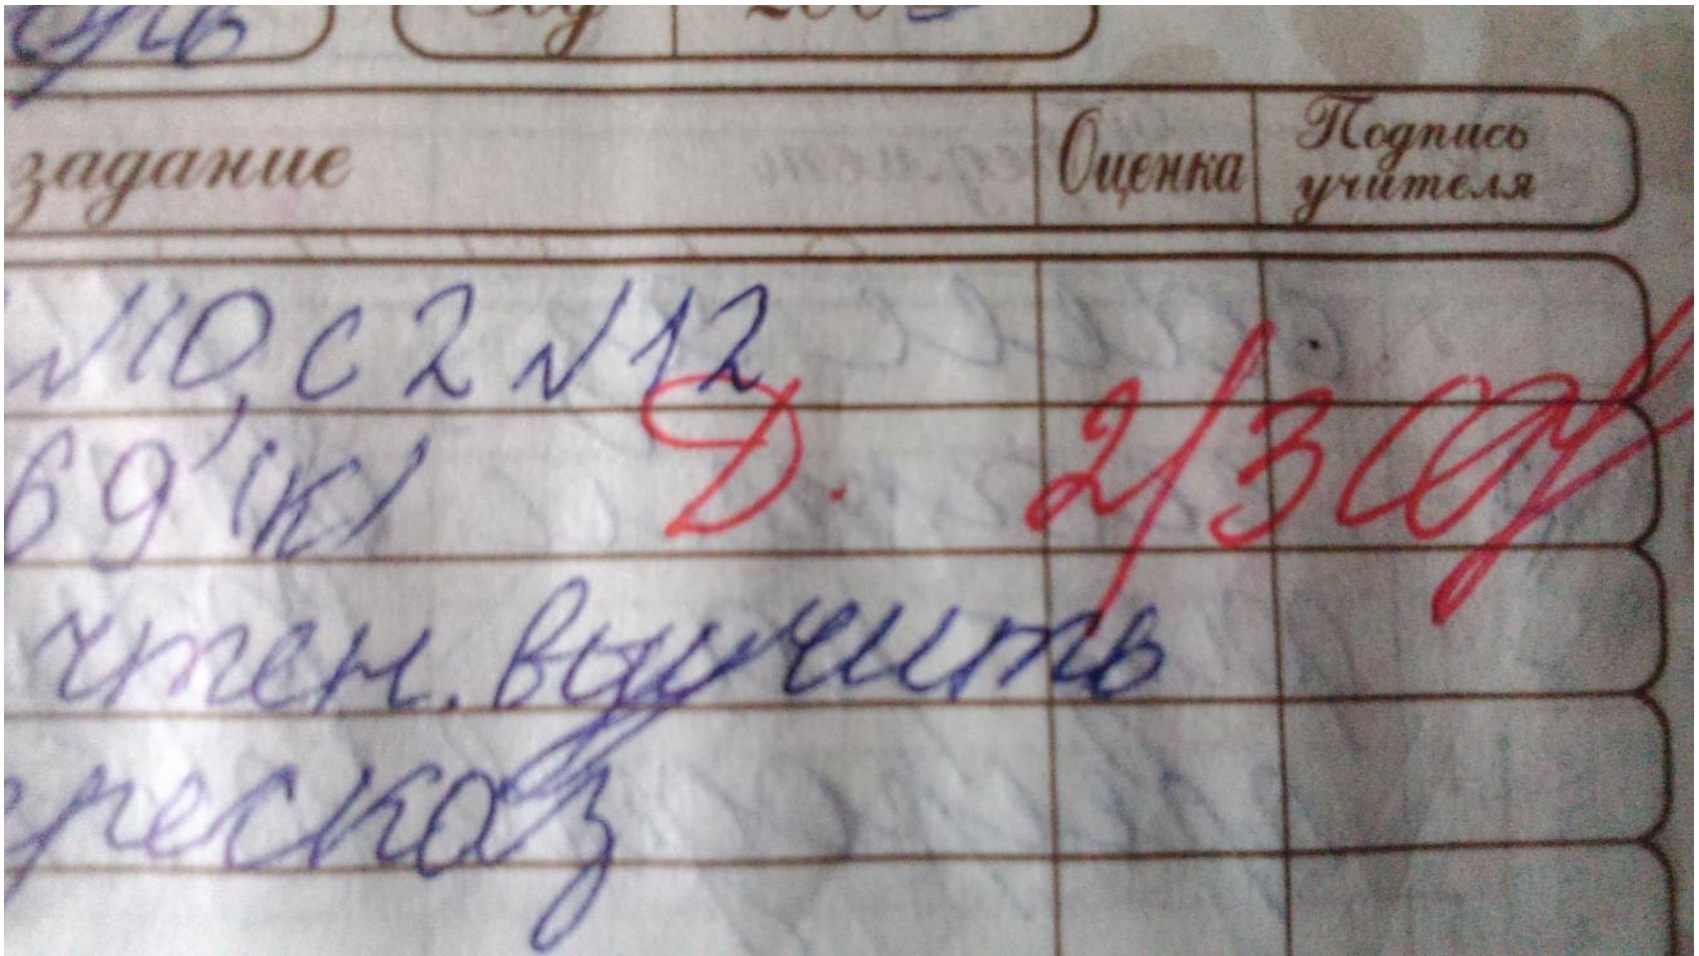 Год 200
задание Оценка Подпись учителя
№10, с 2 №12
69 (к) Д. 2/3
чтен. выучить
ересказ